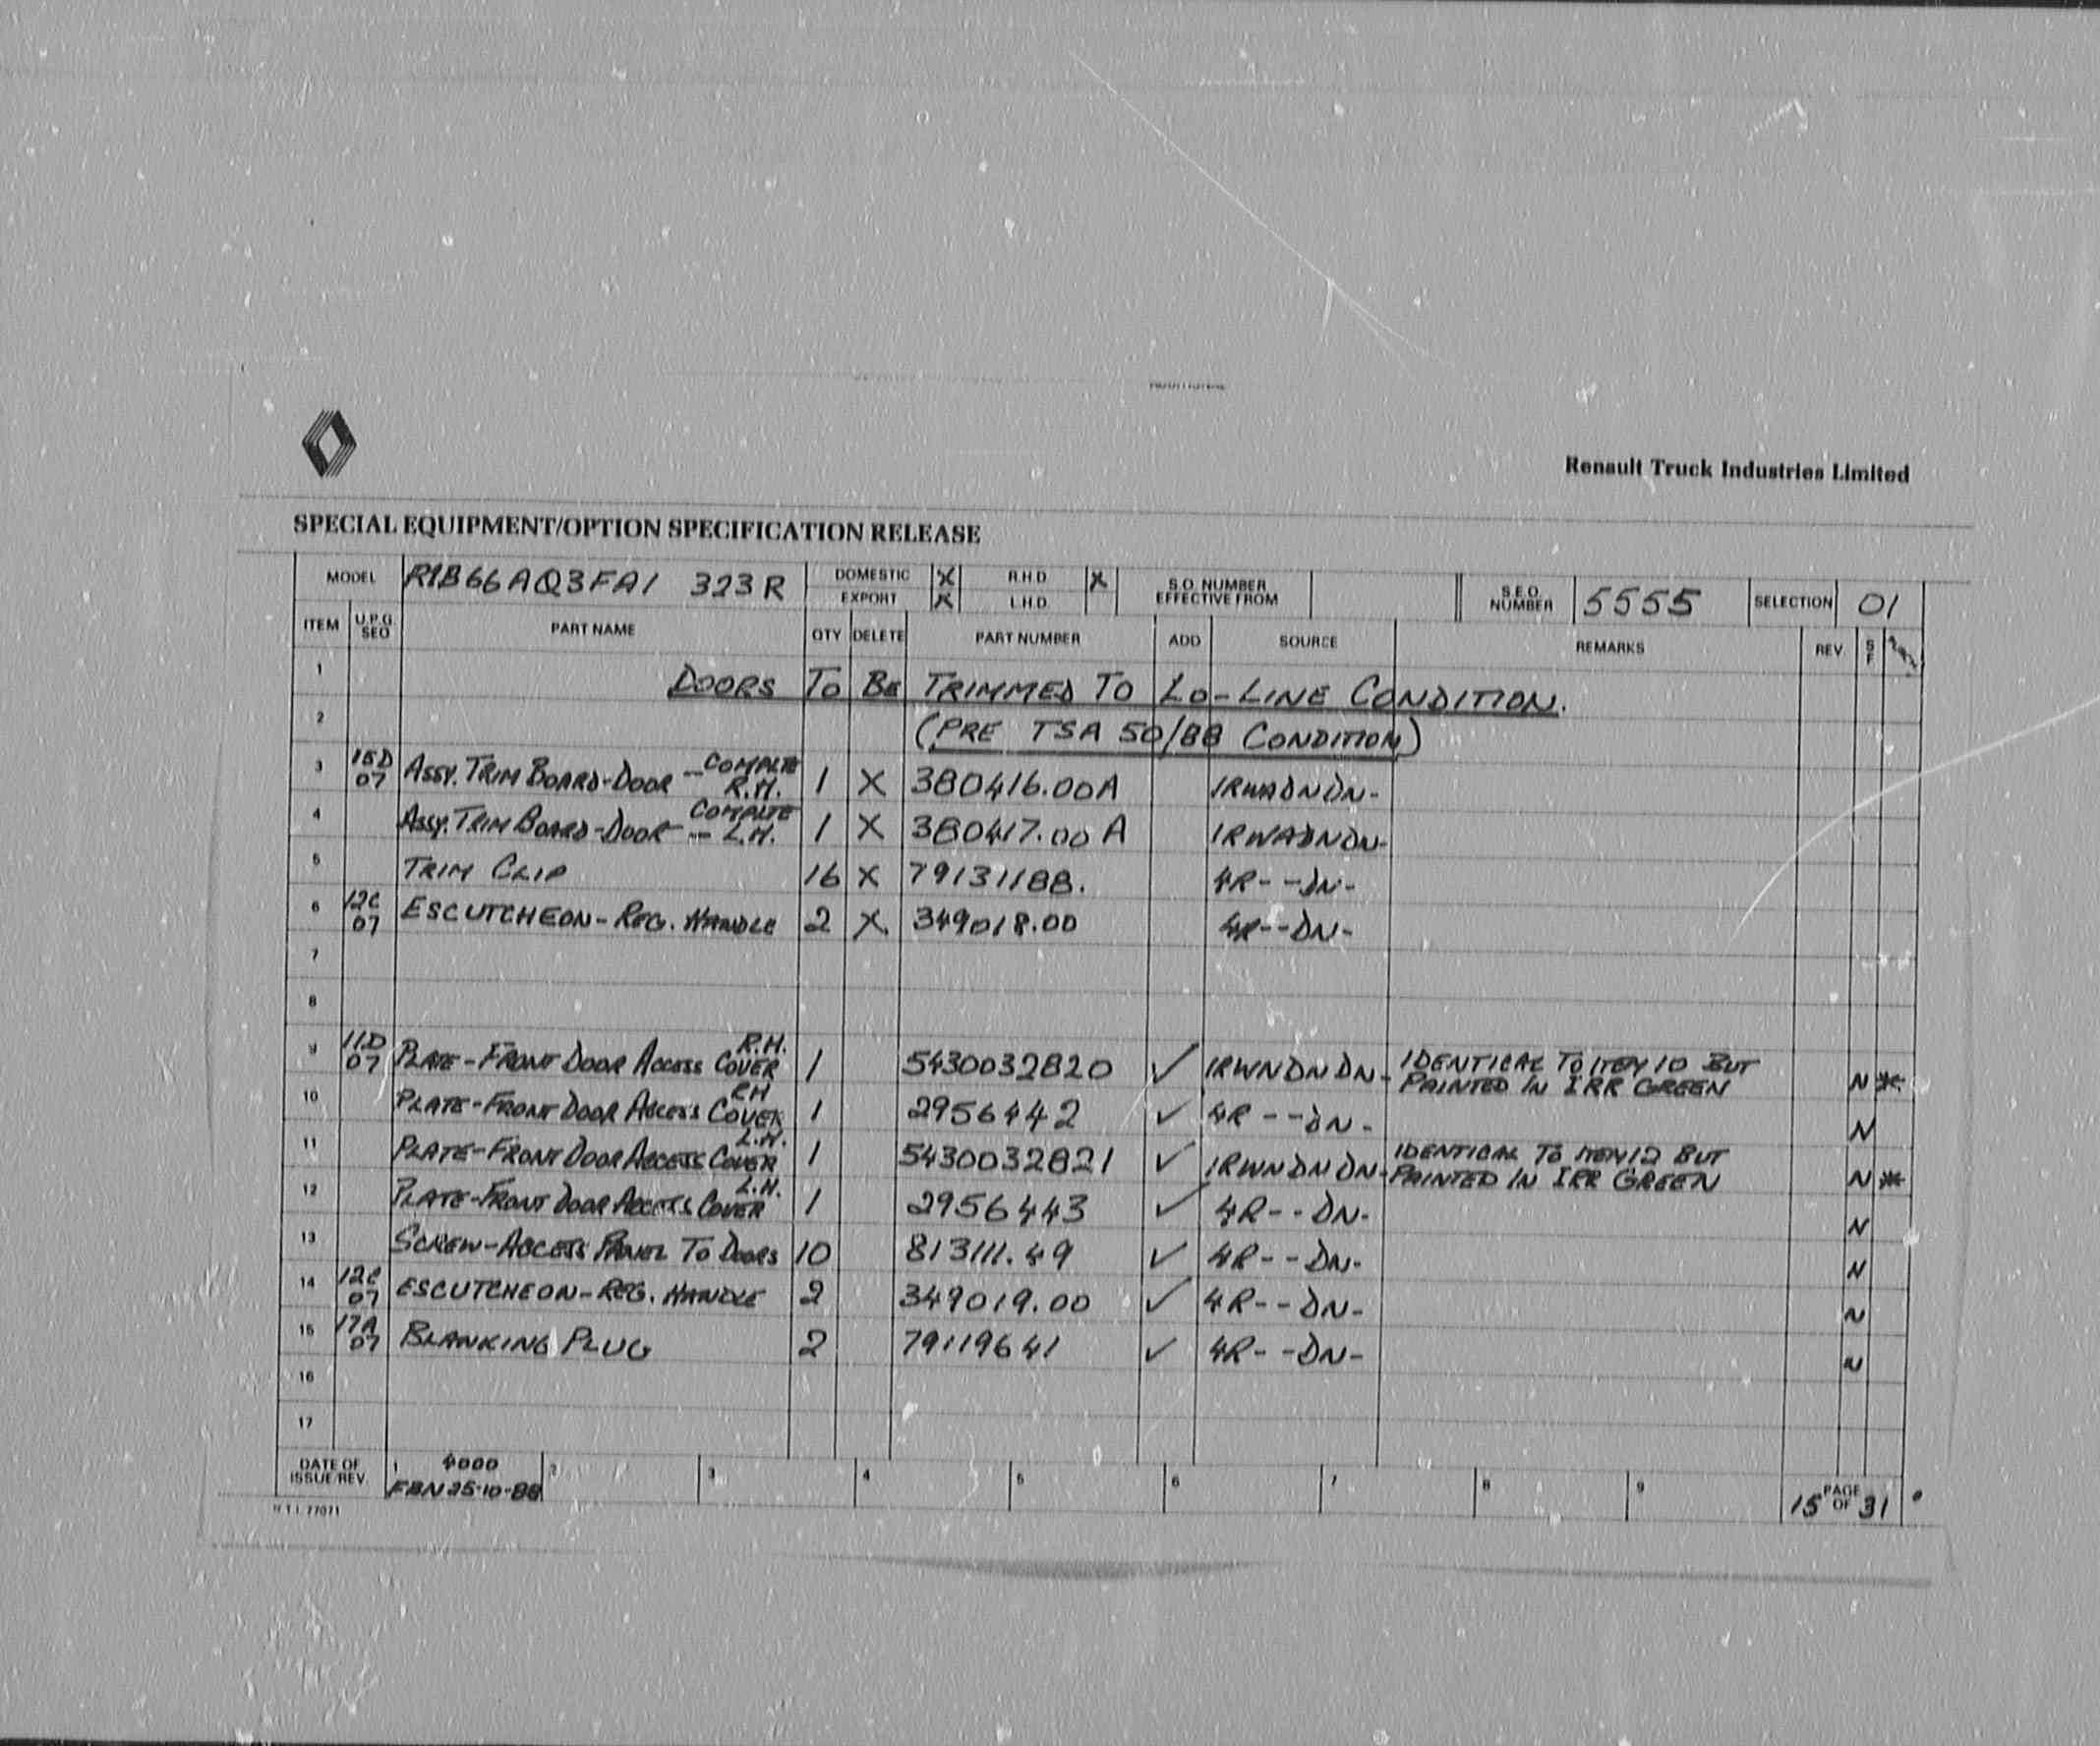 Renault Truck Industries Limited
SPECIAL EQUIPMENT/OPTION SPECIFICATION RELEASE
MODEL R1B66AQ3FA1 323R DOMESTIC X EXPORT X R.H.D X L.H.D. S.O. NUMBER EFFECTIVE FROM S.E.O. NUMBER 5555 SELECTION 01
ITEM U.P.G SEQ PART NAME QTY DELETE PART NUMBER ADD SOURCE REMARKS REV. S F
1 DOORS TO BE TRIMMED TO LO-LINE CONDITION.
2 (PRE TSA 50/88 CONDITION)
3 15D 07 ASSY. TRIM BOARD-DOOR - COMPLTE R.H. 1 X 380416.00A 1RWADNDN-
4 ASSY. TRIM BOARD-DOOR - COMPLTE L.H. 1 X 380417.00 A 1RWADNDN-
5 TRIM CLIP 16 X 79131188. 4R--DN-
6 12C 07 ESCUTCHEON-REG. HANDLE 2 X 349018.00 4R--DN-
7
8
9 11D 07 PLATE-FRONT DOOR ACCESS COVER R.H. 1 5430032820 ✓ 1RWNDNDN- IDENTICAL TO ITEM 10 BUT PAINTED IN IRR GREEN N *
10 PLATE-FRONT DOOR ACCESS COVER RH 1 2956442 ✓ 4R--DN- N
11 PLATE-FRONT DOOR ACCESS COVER L.H. 1 5430032821 ✓ 1RWNDNDN- IDENTICAL TO ITEM 12 BUT PAINTED IN IRR GREEN N *
12 PLATE-FRONT DOOR ACCESS COVER L.H. 1 2956443 ✓ 4R--DN- N
13 SCREW-ACCESS PANEL TO DOORS 10 813111.49 ✓ 4R--DN- N
14 12C 07 ESCUTCHEON-REG. HANDLE 2 349019.00 ✓ 4R--DN- N
15 17A 07 BLANKING PLUG 2 79119641 ✓ 4R--DN- N
16
17
DATE OF ISSUE/REV. 1 4000 FBN 25-10-88 2 3 4 5 6 7 8 9 15 PAGE OF 31
R T I. 77071